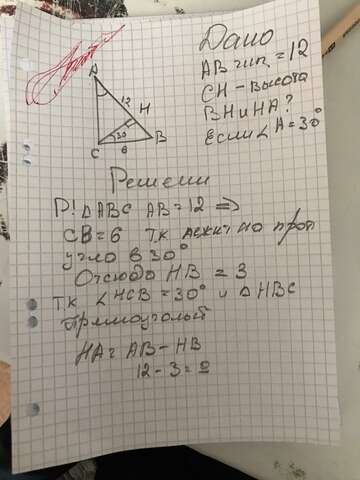 Дано
AB гип. = 12
CH - высота
BH и HA?
Если ∠A = 30°
A
12
H
30
C
B
6
Решени
P! △ABC AB = 12 =>
CB = 6 тк лежит на проп
угло в 30°
Отсюдо HB = 3
тк ∠HCB = 30° и △HBC
прямоуголый
HA = AB - HB
12 - 3 = 9